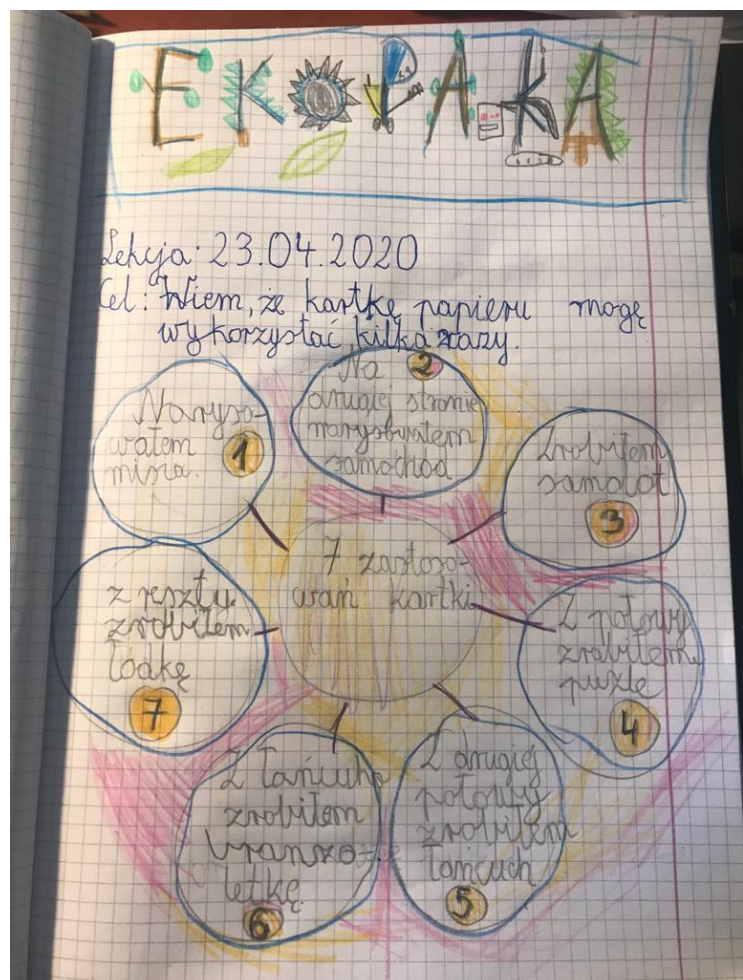 EKOPAKA
Lekcja: 23.04.2020
Cel: Wiem, że kartkę papieru mogę
wykorzystać kilka razy.
Naryso-
wałem
misia.
1
Na
drugiej stronie
narysowałem
samochód
2
Zrobiłem
samolot
3
7 zastoso-
wań kartki
Z połowy
zrobiłem
puzle
4
Z drugiej
połowy
zrobiłem
łańcuch
5
Z łańcucha
zrobiłem
branzo-
letkę.
6
z resztu
zrobiłem
łódkę
7